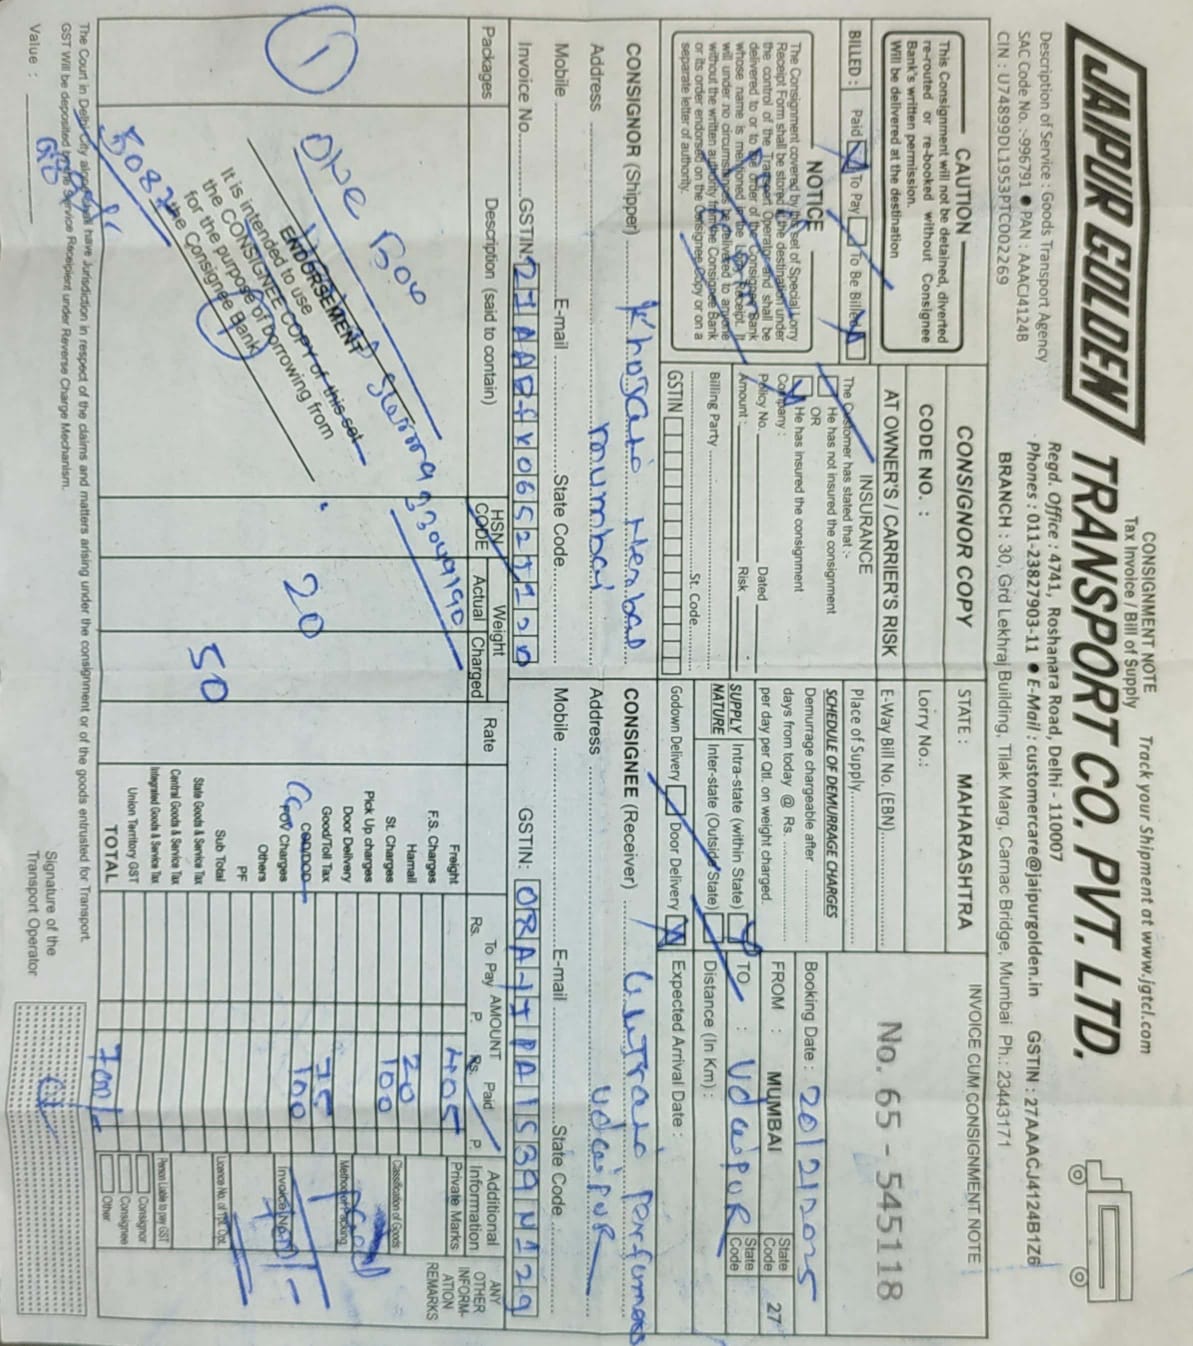 CONSIGNMENT NOTE
Tax Invoice / Bill of Supply
Track your Shipment at www.jgtcl.com
JAIPUR GOLDEN TRANSPORT CO. PVT. LTD.
Regd. Office : 4741, Roshanara Road, Delhi - 110007
Phones : 011-23827903-11 ● E-Mail : customercare@jaipurgolden.in GSTIN : 27AAACJ4124B1Z6
Description of Service : Goods Transport Agency
SAC Code No. :-996791 ● PAN : AAACJ4124B
CIN : U74899DL1953PTC002269
BRANCH : 30, Grd Lekhraj Building, Tilak Marg, Carnac Bridge, Mumbai Ph.: 23443171
CAUTION
This Consignment will not be detained, diverted
re-routed or re-booked without Consignee
Bank's written permission.
Will be delivered at the destination
CONSIGNOR COPY
CODE NO. :
AT OWNER'S / CARRIER'S RISK
STATE : MAHARASHTRA
Lorry No.:
E-Way Bill No. (EBN)
Place of Supply
INVOICE CUM CONSIGNMENT NOTE
No. 65 - 545118
BILLED : Paid To Pay To Be Billed
NOTICE
The Consignment covered by this set of Special Lorry
Receipt Form shall be stored at the destination under
the control of the Transport Operator and shall be
delivered to or to the order of the Consignee Bank
whose name is mentioned in the Lorry Receipt. It
will under no circumstances be delivered to anyone
without the written authority from the Consignee Bank
or its order endorsed on the Consignee Copy or on a
separate letter of authority.
INSURANCE
The Customer has stated that :-
He has not insured the consignment
OR
He has insured the consignment
Company :
Policy No. Dated
Amount : Risk
Billing Party
St. Code
GSTIN
SCHEDULE OF DEMURRAGE CHARGES
Demurrage chargeable after
days from today @ Rs.
per day per Qtl. on weight charged.
SUPPLY NATURE
Intra-state (within State)
Inter-state (Outside State)
Godown Delivery Door Delivery
Booking Date : 20/2/2025
FROM : MUMBAI State Code 27
TO : Udaipur State Code
Distance (In Km) :
Expected Arrival Date :
CONSIGNOR (Shipper)
Address Mumbai
Mobile E-mail State Code
Invoice No. GSTIN
CONSIGNEE (Receiver)
Address Udaipur
Mobile E-mail State Code
GSTIN:
Packages
Description (said to contain)
HSN CODE
Weight
Actual Charged
Rate
AMOUNT
To Pay Paid
Rs. P. Rs. P.
Additional Information
Private Marks
ANY OTHER INFORM-ATION REMARKS
1
One Box
33049190
20
50
ENDORSEMENT
It is intended to use
the CONSIGNEE COPY of this set
for the purpose of borrowing from
the Consignee Bank
Freight 405
F.S. Charges
Hamali 20
St. Charges 100
Pick Up charges
Door Delivery
Good/Toll Tax 75
COD/DOD
FOV Charges 100
Others
PF
Sub Total
State Goods & Service Tax
Central Goods & Service Tax
Integrated Goods & Service Tax
Union Territory GST
TOTAL 700/-
Classification of Goods
Method of Packing
Invoice No.
Person Liable to pay GST
Consignor
Consignee
Other
The Court in Delhi City alone shall have Jurisdiction in respect of the claims and matters arising under the consignment or of the goods entrusted for Transport.
GST Will be deposited by the Service Receipient under Reverse Charge Mechanism.
Value :
Signature of the
Transport Operator